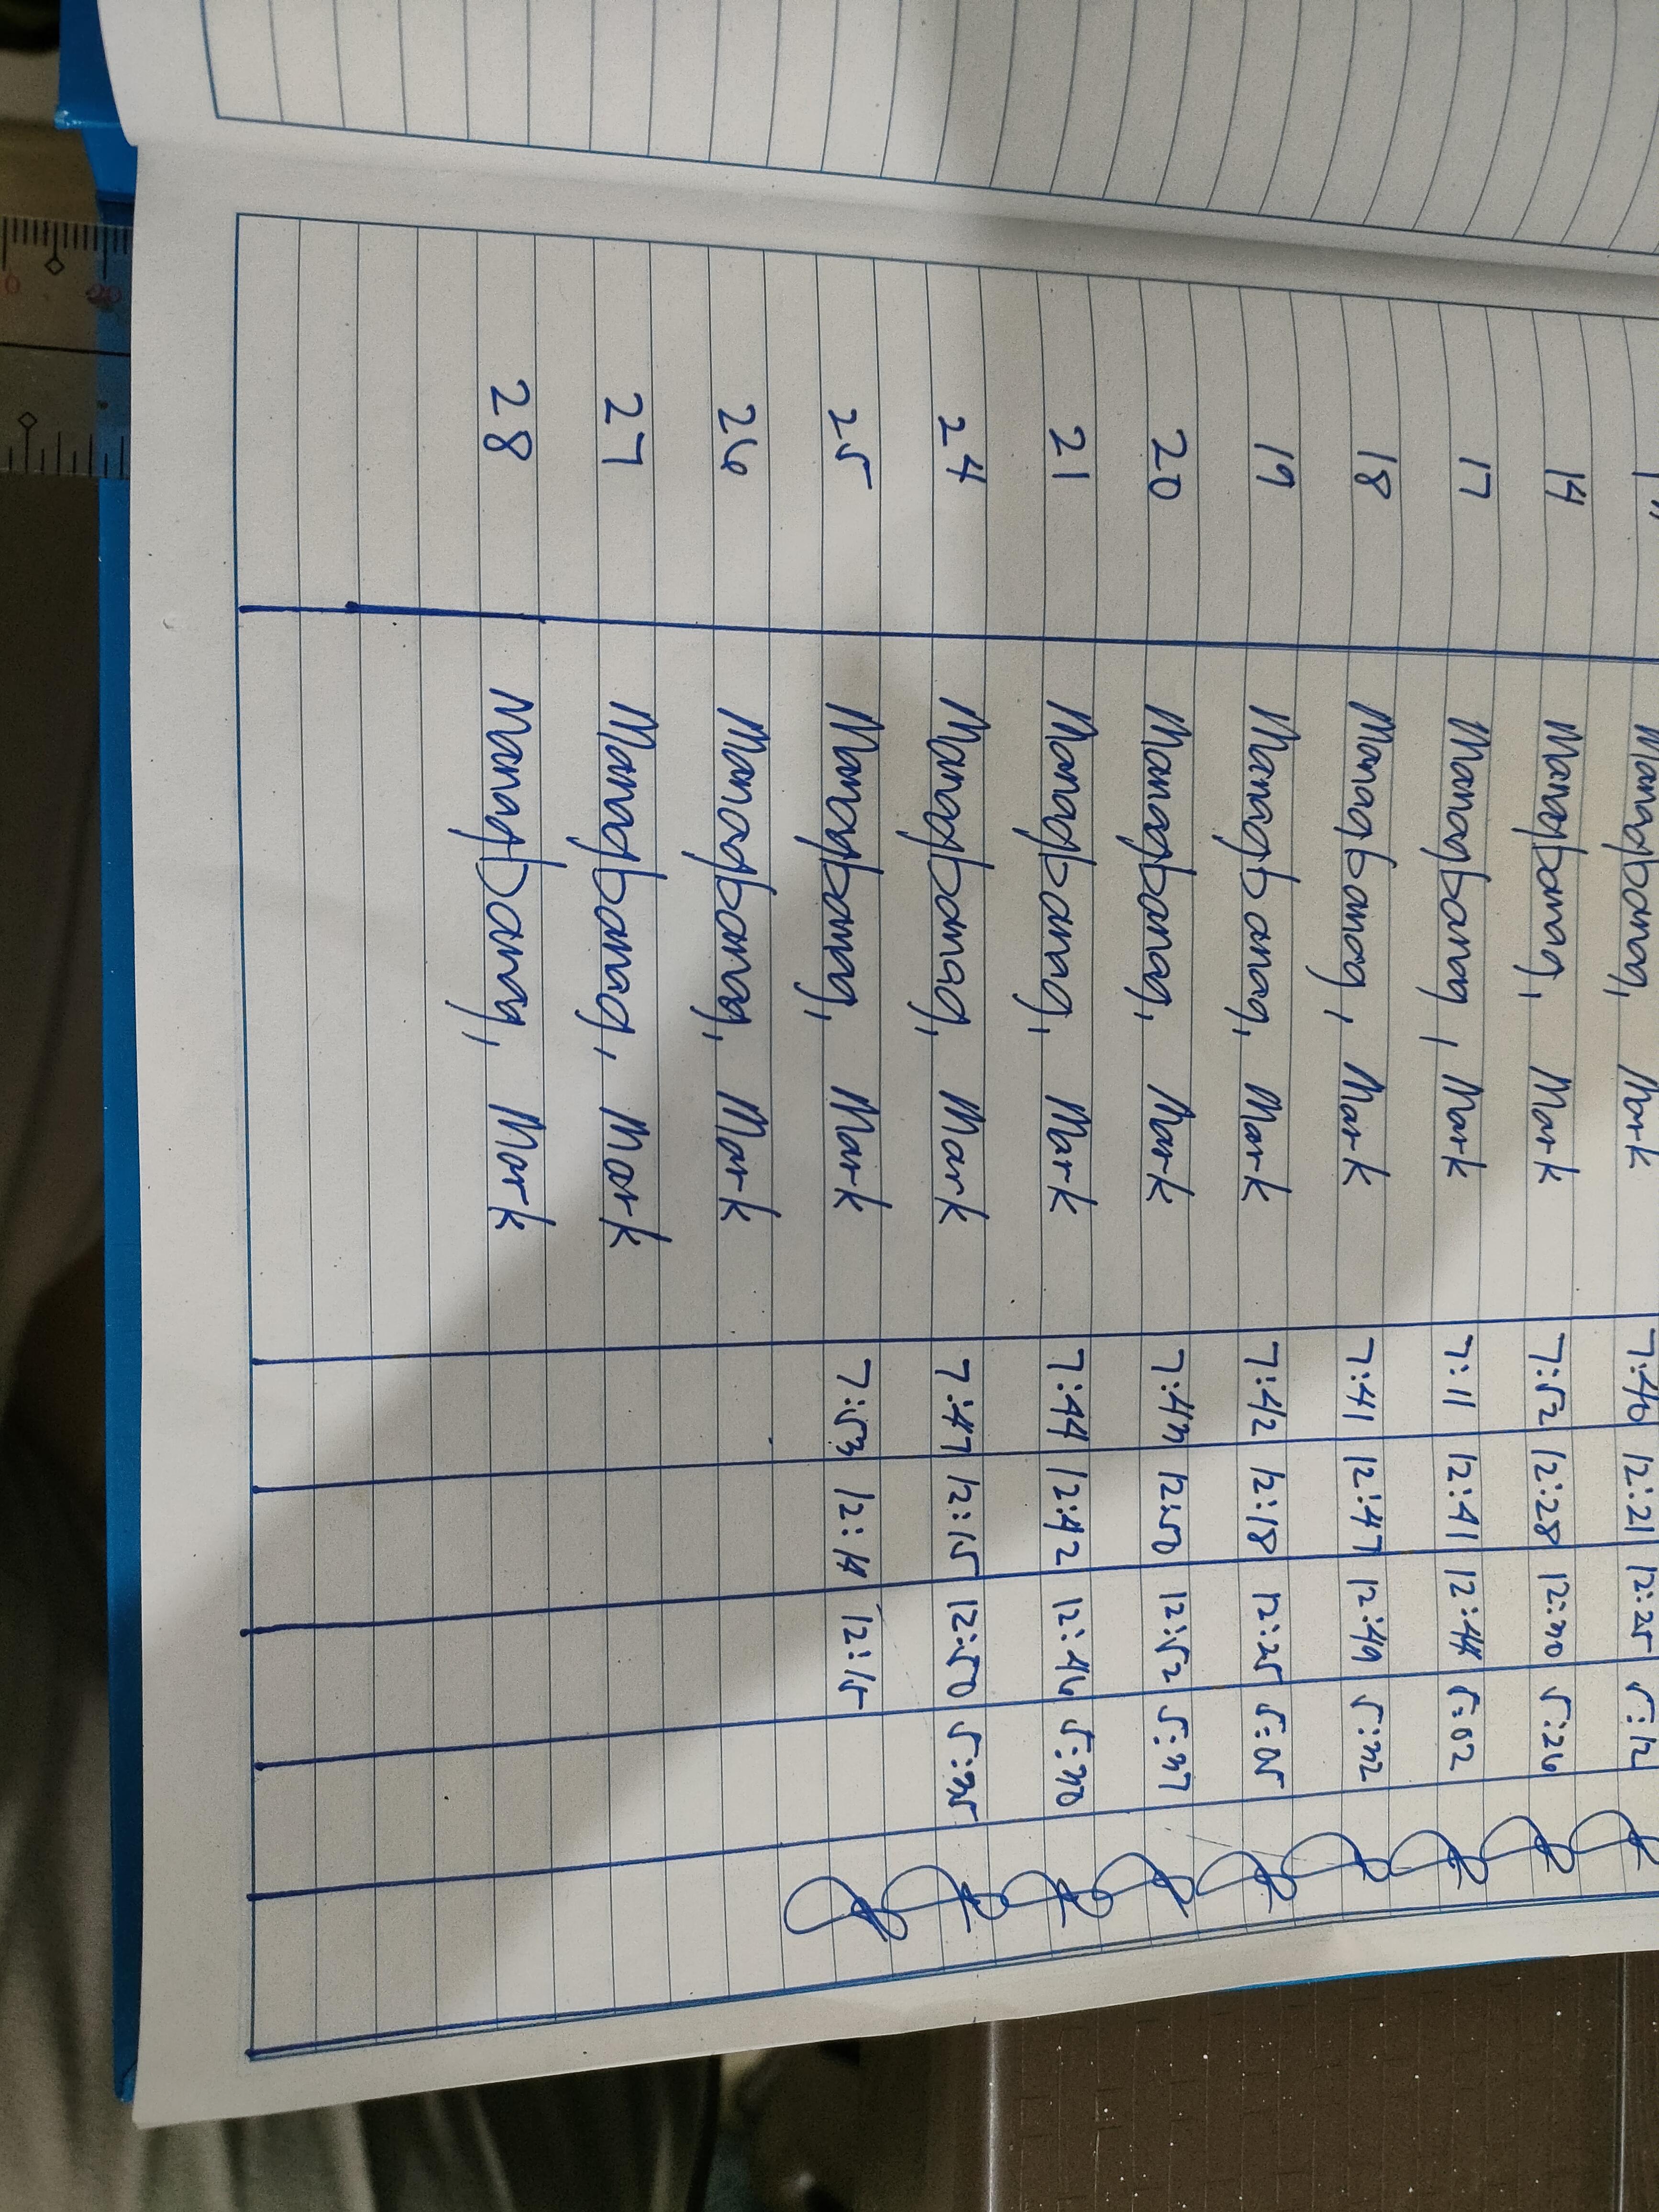 Manag banag, Mark 7:46 12:21 12:25 5:12
14 Managbanag, Mark 7:52 12:28 12:30 5:26
17 Managbanag, Mark 7:11 12:41 12:44 5:02
18 Managbanag, Mark 7:41 12:47 12:49 5:32
19 Managbanag, Mark 7:42 12:18 12:25 5:05
20 Managbanag, Mark 7:43 12:50 12:52 5:37
21 Managbanag, Mark 7:44 12:42 12:46 5:30
24 Managbanag, Mark 7:47 12:15 12:50 5:35
25 Managbanag, Mark 7:53 12:14 12:15
26 Managbanag, Mark
27 Managbanag, Mark
28 Managbanag, Mark